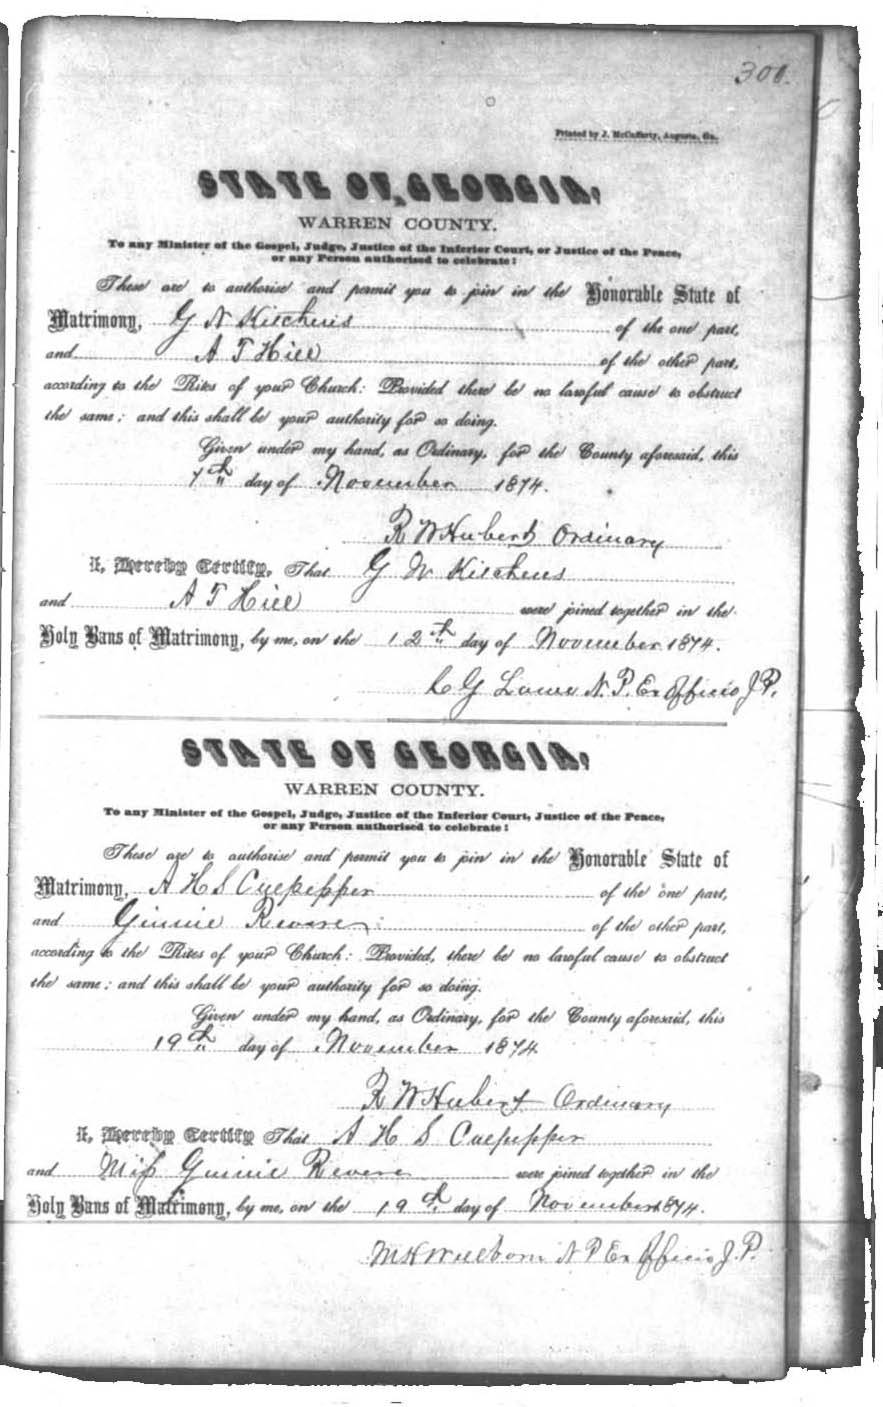 300.
Printed by J. McCafferty, Augusta, Ga.
STATE OF GEORGIA,
WARREN COUNTY.
To any Minister of the Gospel, Judge, Justice of the Inferior Court, or Justice of the Peace,
or any Person authorised to celebrate:
These are to authorise and permit you to join in the Honorable State of
Matrimony, G N Kitchens of the one part,
and A T Hill of the other part,
according to the Rites of your Church: Provided there be no lawful cause to obstruct
the same; and this shall be your authority for so doing.
Given under my hand, as Ordinary, for the County aforesaid, this
7th day of November 1874.
R W Hubert Ordinary
I, Hereby Certify, That G W Kitchens
and A T Hill were joined together in the
Holy Bans of Matrimony, by me, on the 12th day of November 1874.
C G Lowe N. P. Ex Officio J P.
STATE OF GEORGIA,
WARREN COUNTY.
To any Minister of the Gospel, Judge, Justice of the Inferior Court, Justice of the Peace,
or any Person authorised to celebrate:
These are to authorise and permit you to join in the Honorable State of
Matrimony, A H S Culpepper of the one part,
and Ginnie Revere of the other part,
according to the Rites of your Church: Provided, there be no lawful cause to obstruct
the same; and this shall be your authority for so doing.
Given under my hand, as Ordinary, for the County aforesaid, this
19th day of November 1874
R W Hubert Ordinary
I, Hereby Certify That A H S Culpepper
and Miss Ginnie Revere were joined together in the
Holy Bans of Matrimony, by me, on the 19th day of November 1874.
M H Wellborn N P Ex Officio J. P.